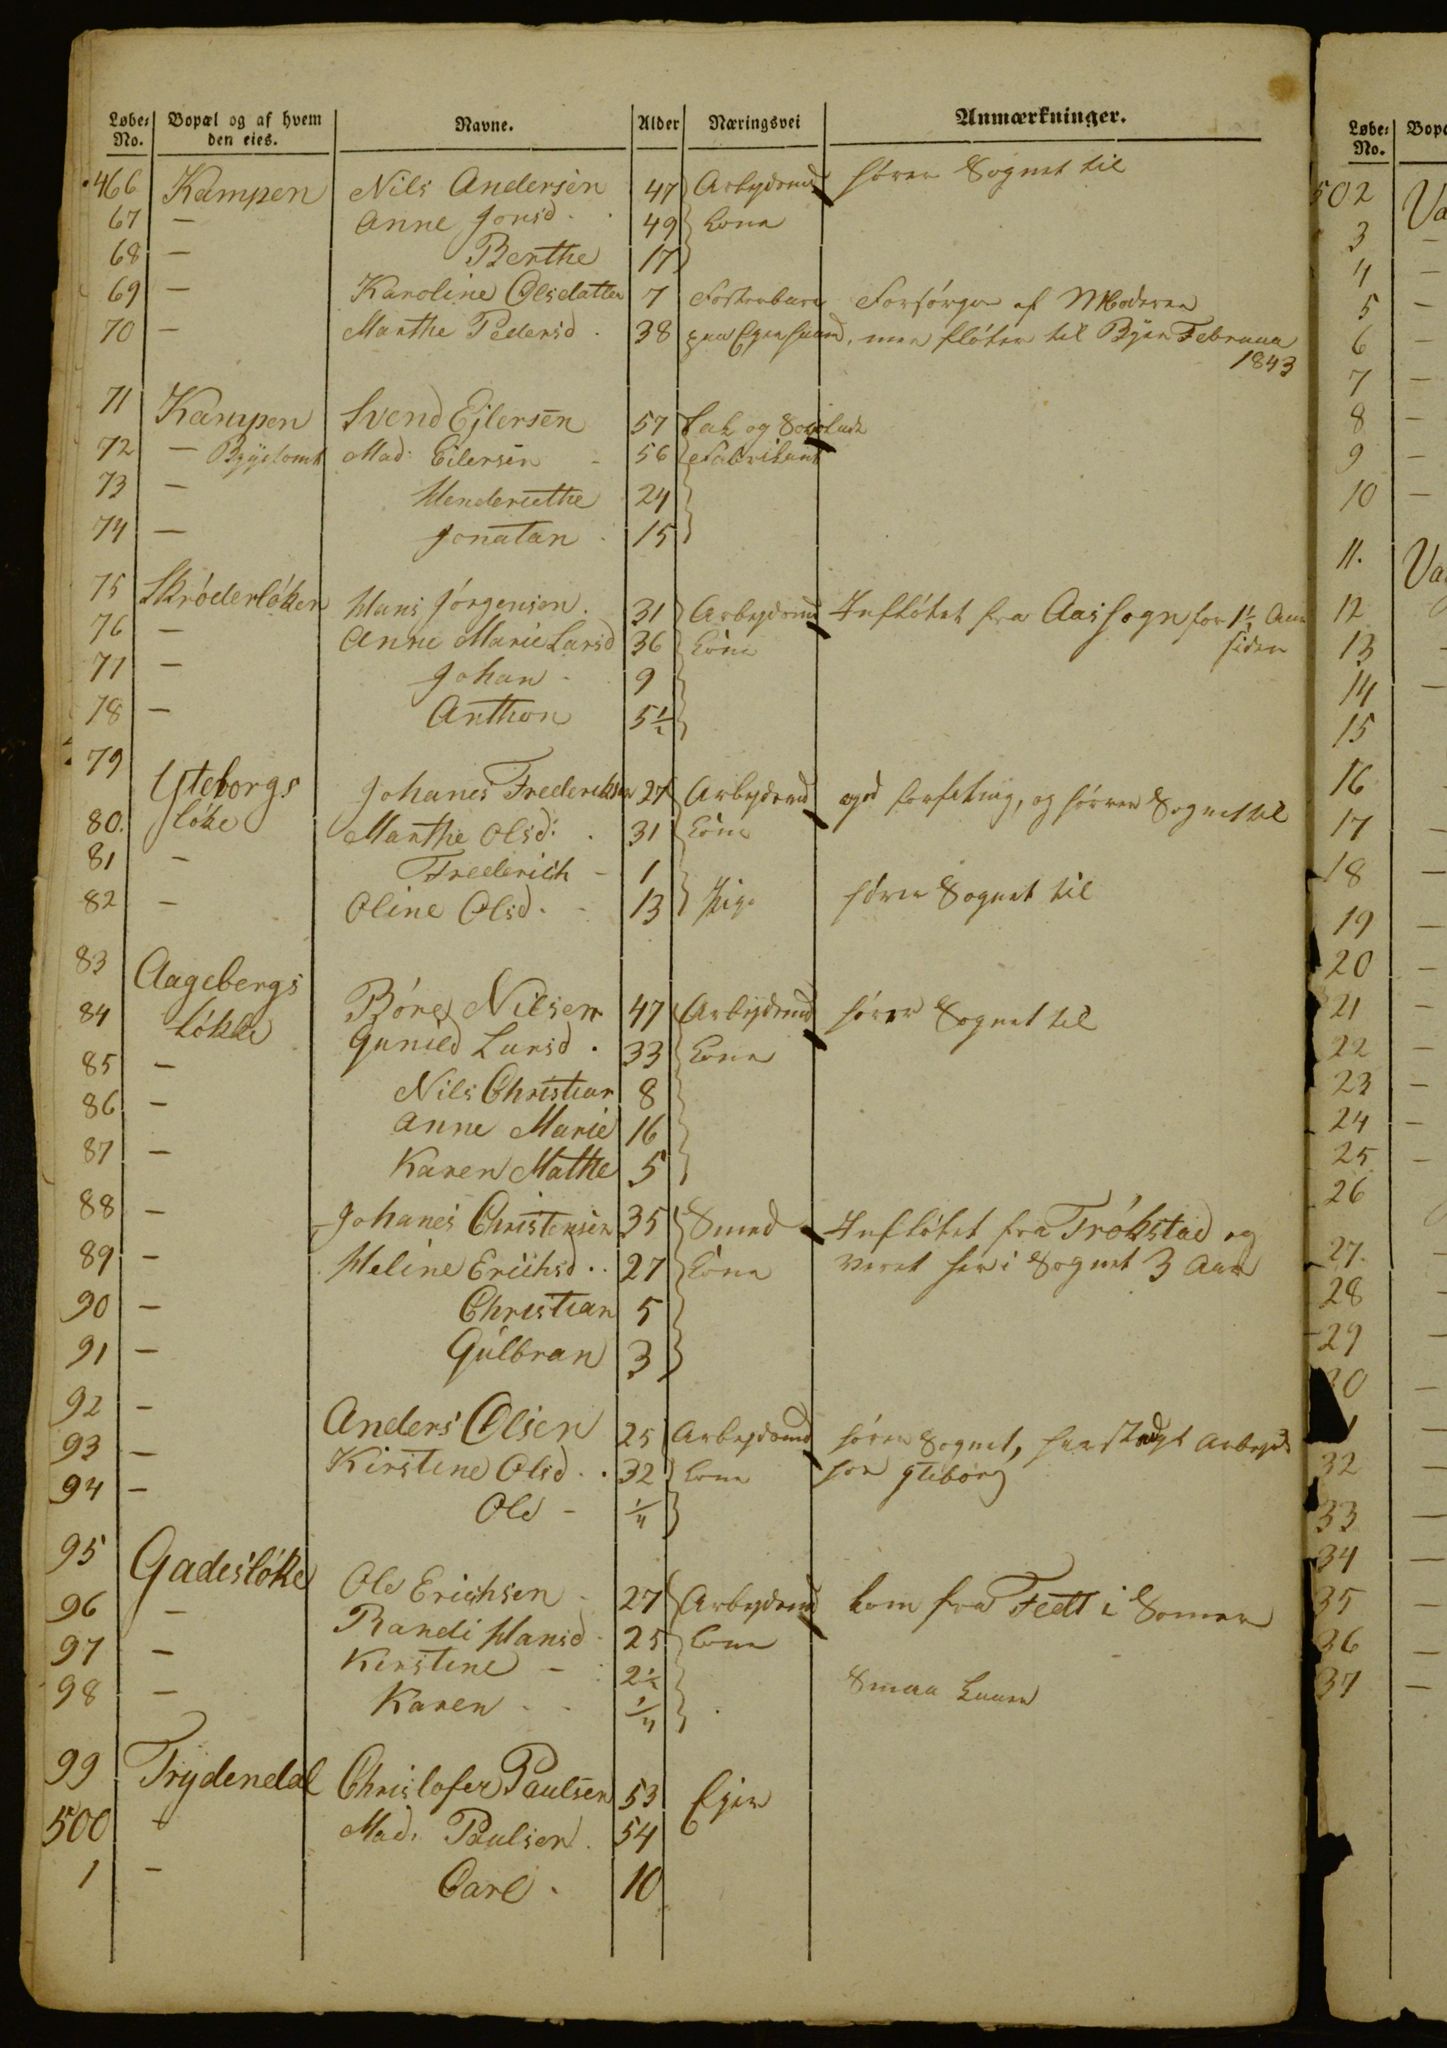 Løbe-No. Bopæl og af hvem den eies. Navne. Alder Næringsvei Anmærkninger.
466 Kampen Nils Andersen 47 Arbeydsmd hører Sognet til
67 — Anne Jonsd. 49 kona
68 — Berthe 17
69 — Karoline Olsdatter 7 Fosterbarn Forsørges af Moderen
70 — Marthe Pedersd. 38 paa Egen haand, men fløter til Byen Februar
1843
71 Kampen Svend Ejlersen 57 Lak og
72 — Mad: Eilersen - 56 Fabrikant
73 — Hendericthe 24
74 — Jonatan 15
75 Skrøderløken Hans Jørgensen. 31 Arbeydsmd Infløtet fra Aas Sogn for 1½ Aar
siden
76 — Anne Marie Larsd 36 kone
77 — Johan - 9
78 — Anthon 5½
79 Yteborgs Johanes Frederichsen 27 Arbeydsmd og hører Sognet til
80. løke Marthe Olsd: 31 kone
81 — Frederich - 1
82 — Oline Olsd. - 13 Pige hører Sognet til
83 Aagebergs Børe Nilsen 47 Arbeydsmd hører Sognet til
84 løkke Gunild Larsd. 33 kona
85 — Nils Christian 8
86 — Anne Marie 16
87 — Karen Mathe 5
88 — Johanes Christensen 35 Smed Infløtet fra Trøkstad og
89 — Heline Erichsd.. 27 kona veret her i Sognet 3 Aar
90 — Christian 5
91 — Gulbran 3
92 — Anders Olsen 25 Arbeydsmd hører Sognet, Arbeyde
93 — Kirstene Olsd.. 32 kona hos Yteborg
94 — Ole - ¼
95 Gadesløke Ole Erichsen - 27 Arbeydsmd kom fra Fedt i Somer
96 — Randi Hansd. 25 kona
97 — Kirstene - 2½
98 — Karen - - ¼ Smaa kaarn
99 Frydendal Christofer Paulsen 53 Ejer
500 - Mad: Paulsen. 54
1 — Carl. 10
Løbe-No. Bopæ
502 Va
3 —
4 —
5 —
6 —
7 —
8 —
9 —
10 —
11. Va
12
13 —
14 —
15
16
17 —
18 —
19 —
20 —
21 —
22 —
23 —
24 —
25 —
26
27. —
28 —
29 —
30 —
1 —
32 —
33 —
34 —
35 —
36 —
37 —